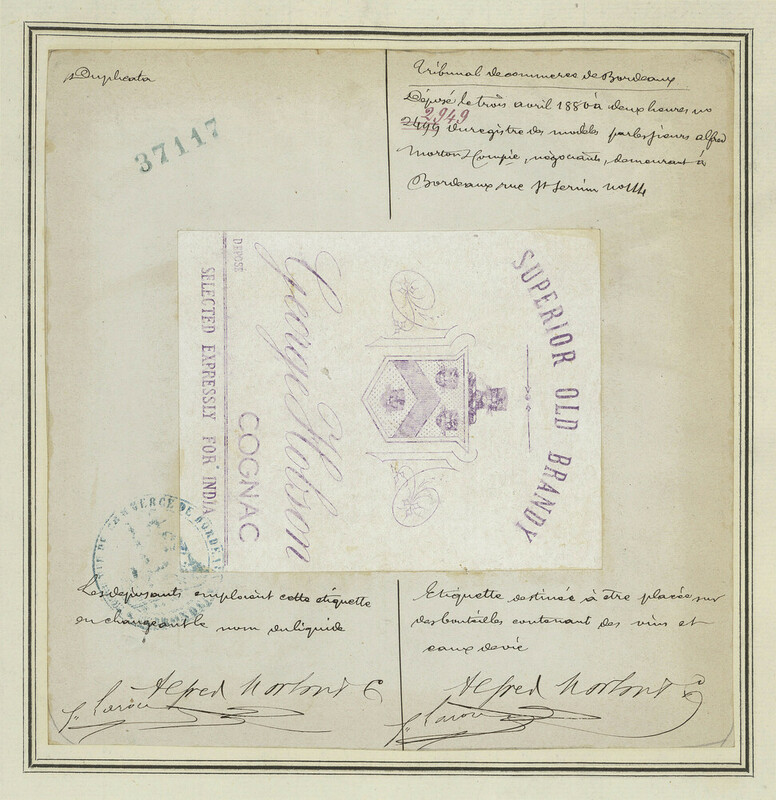 Duplicata
37117
Tribunal de commerce de Bordeaux
Déposé le trois avril 1880 à deux heures no
2949
2499 du registre des modèles par les sieurs Alfred
Morton & Compie, négociants, demeurant à
Bordeaux rue St Sernin no 114
SUPERIOR OLD BRANDY
George Hobson
COGNAC
DÉPOSÉ
SELECTED EXPRESSLY FOR INDIA
DE COMMERCE DE BORDEAUX
Les déposants emploient cette étiquette
en changeant le nom du liquide
Alfred Morton & Co
Etiquette destinée à être placée sur
des bouteilles contenant des vins et
eaux de vie
Alfred Morton & Co